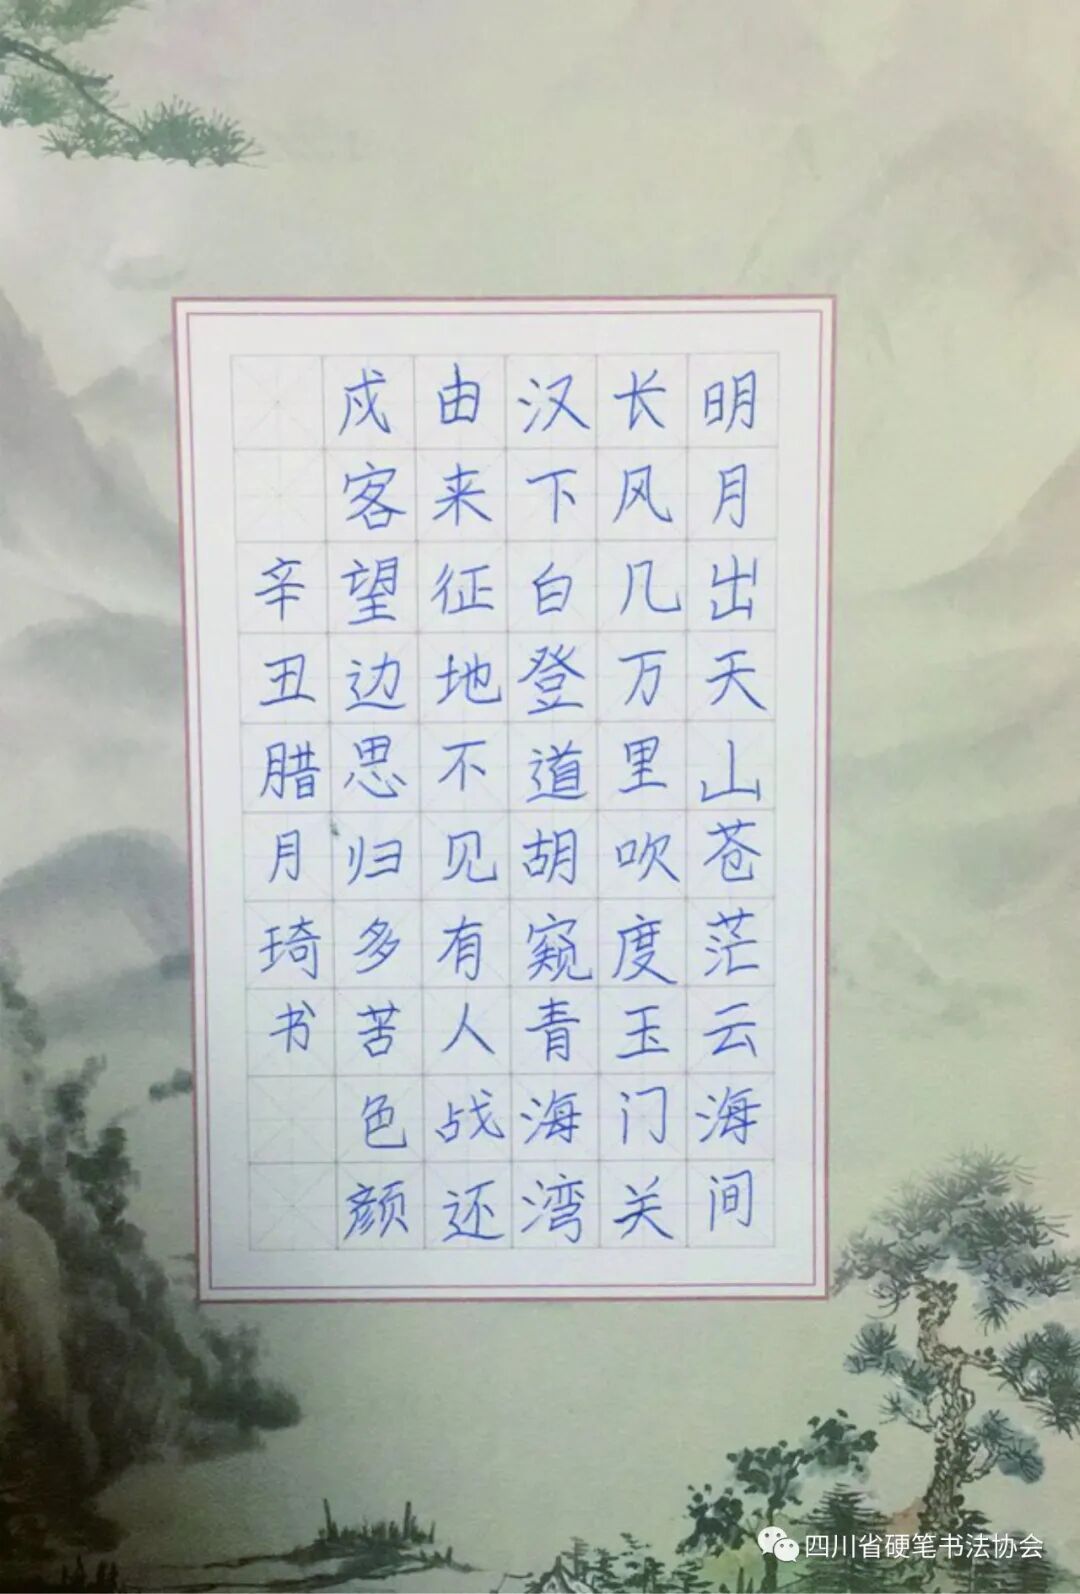 明月出天山苍茫云海间
长风几万里吹度玉门关
汉下白登道胡窥青海湾
由来征地不见有人战还
戍客望边思归多苦色颜
辛丑腊月琦书
四川省硬笔书法协会